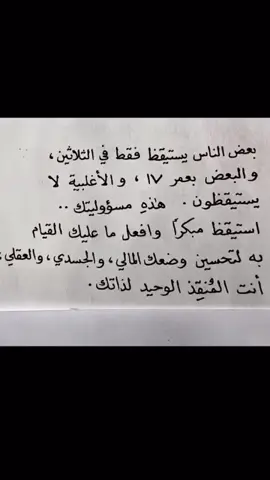 بعض الناس يستيقظ فقط في الثلاثين،
والبعض بعمر ١٧، والأغلبية لا
يستيقظون. هذهِ مسؤوليتك ..
استيقظ مبكراً وافعل ما عليك القيام
به لتحسين وضعك المالي، والجسدي، والعقلي،
أنت المُنقِذ الوحيد لذاتك.